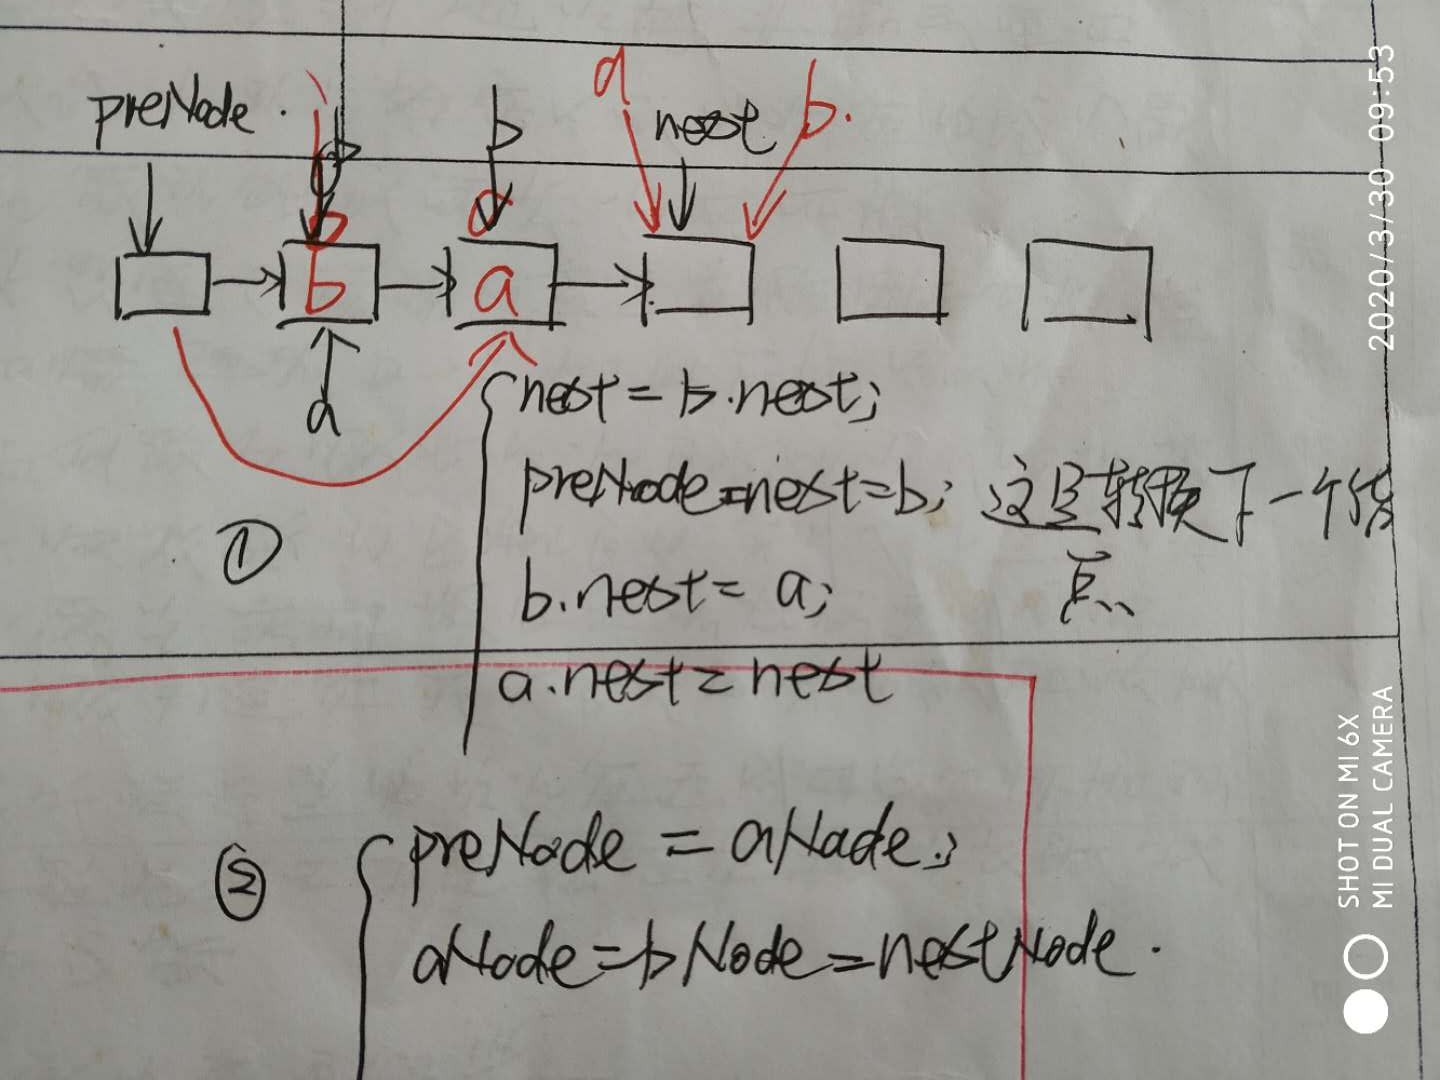 preNode.
b
a
next
b.
b
a
b
a
a
next = b.next;
preNode=next=b; 这里转换了一个结
点
b.next = a;
①
a.next = next
②
preNode = aNode;
aNode = bNode = nextNode.
2020/3/30 09:53
SHOT ON MI 6X
MI DUAL CAMERA